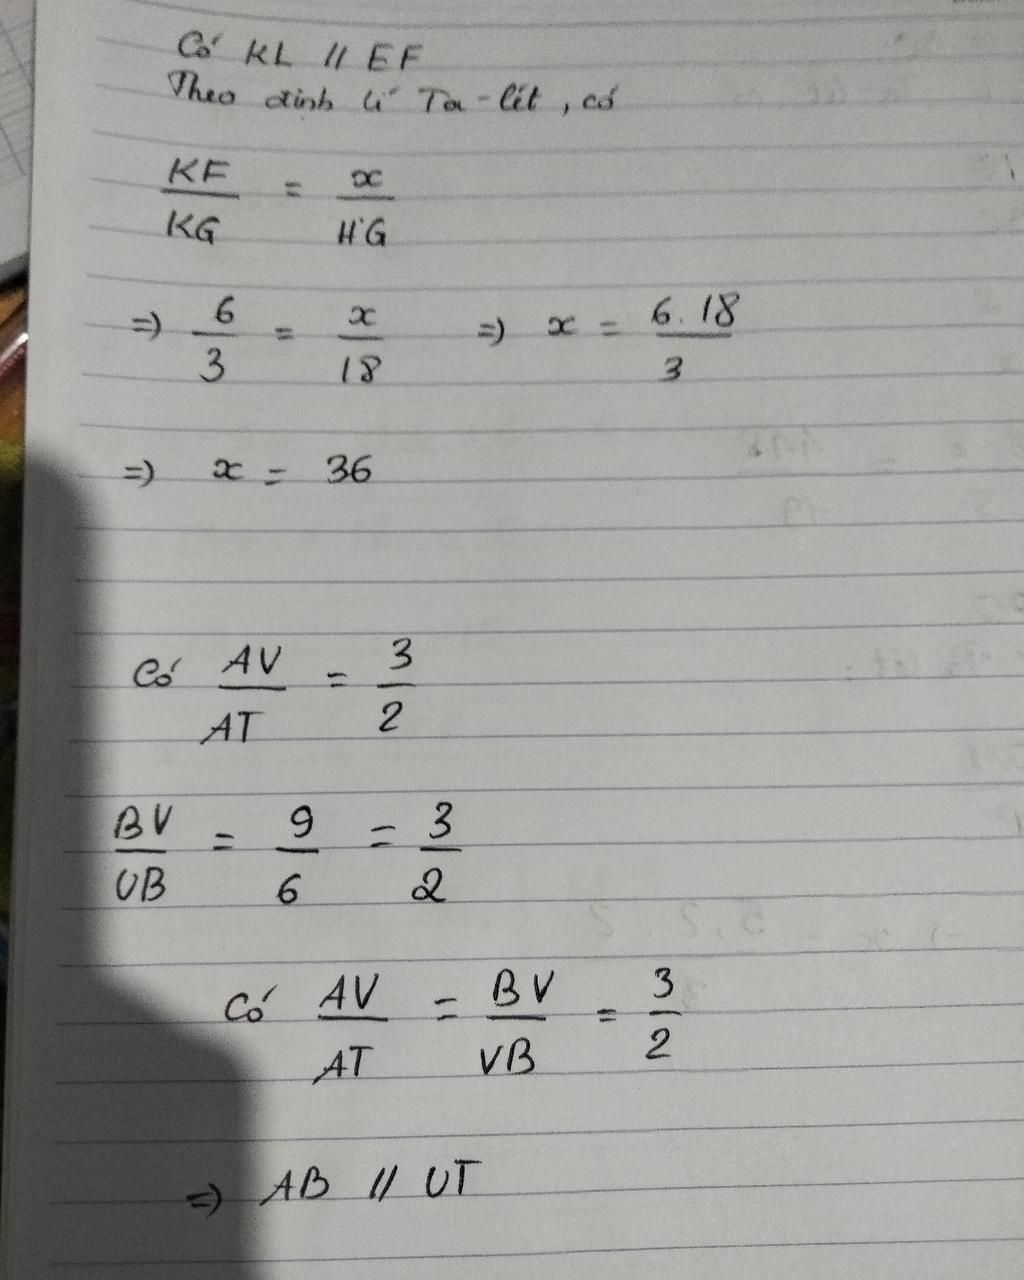 Có KL // EF
Theo định lí Ta-lét, có
KF/KG = x/HG
=) 6/3 = x/18 =) x = 6.18/3
=) x = 36
Có AV/AT = 3/2
BV/UB = 9/6 = 3/2
Có AV/AT = BV/VB = 3/2
=) AB // UT